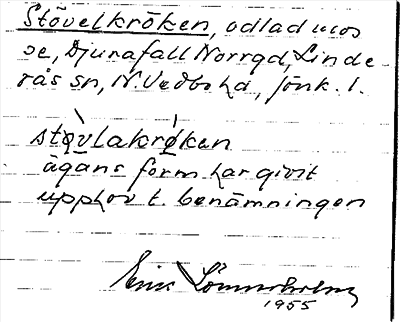 Stövelkröken, odlad mos
se, Djurafall Norrgd, Linde
rås sn, N. Vedbo hd, Jönk. l.
støvlakrøken
ägans form har givit
upphov t. benämningen
1955